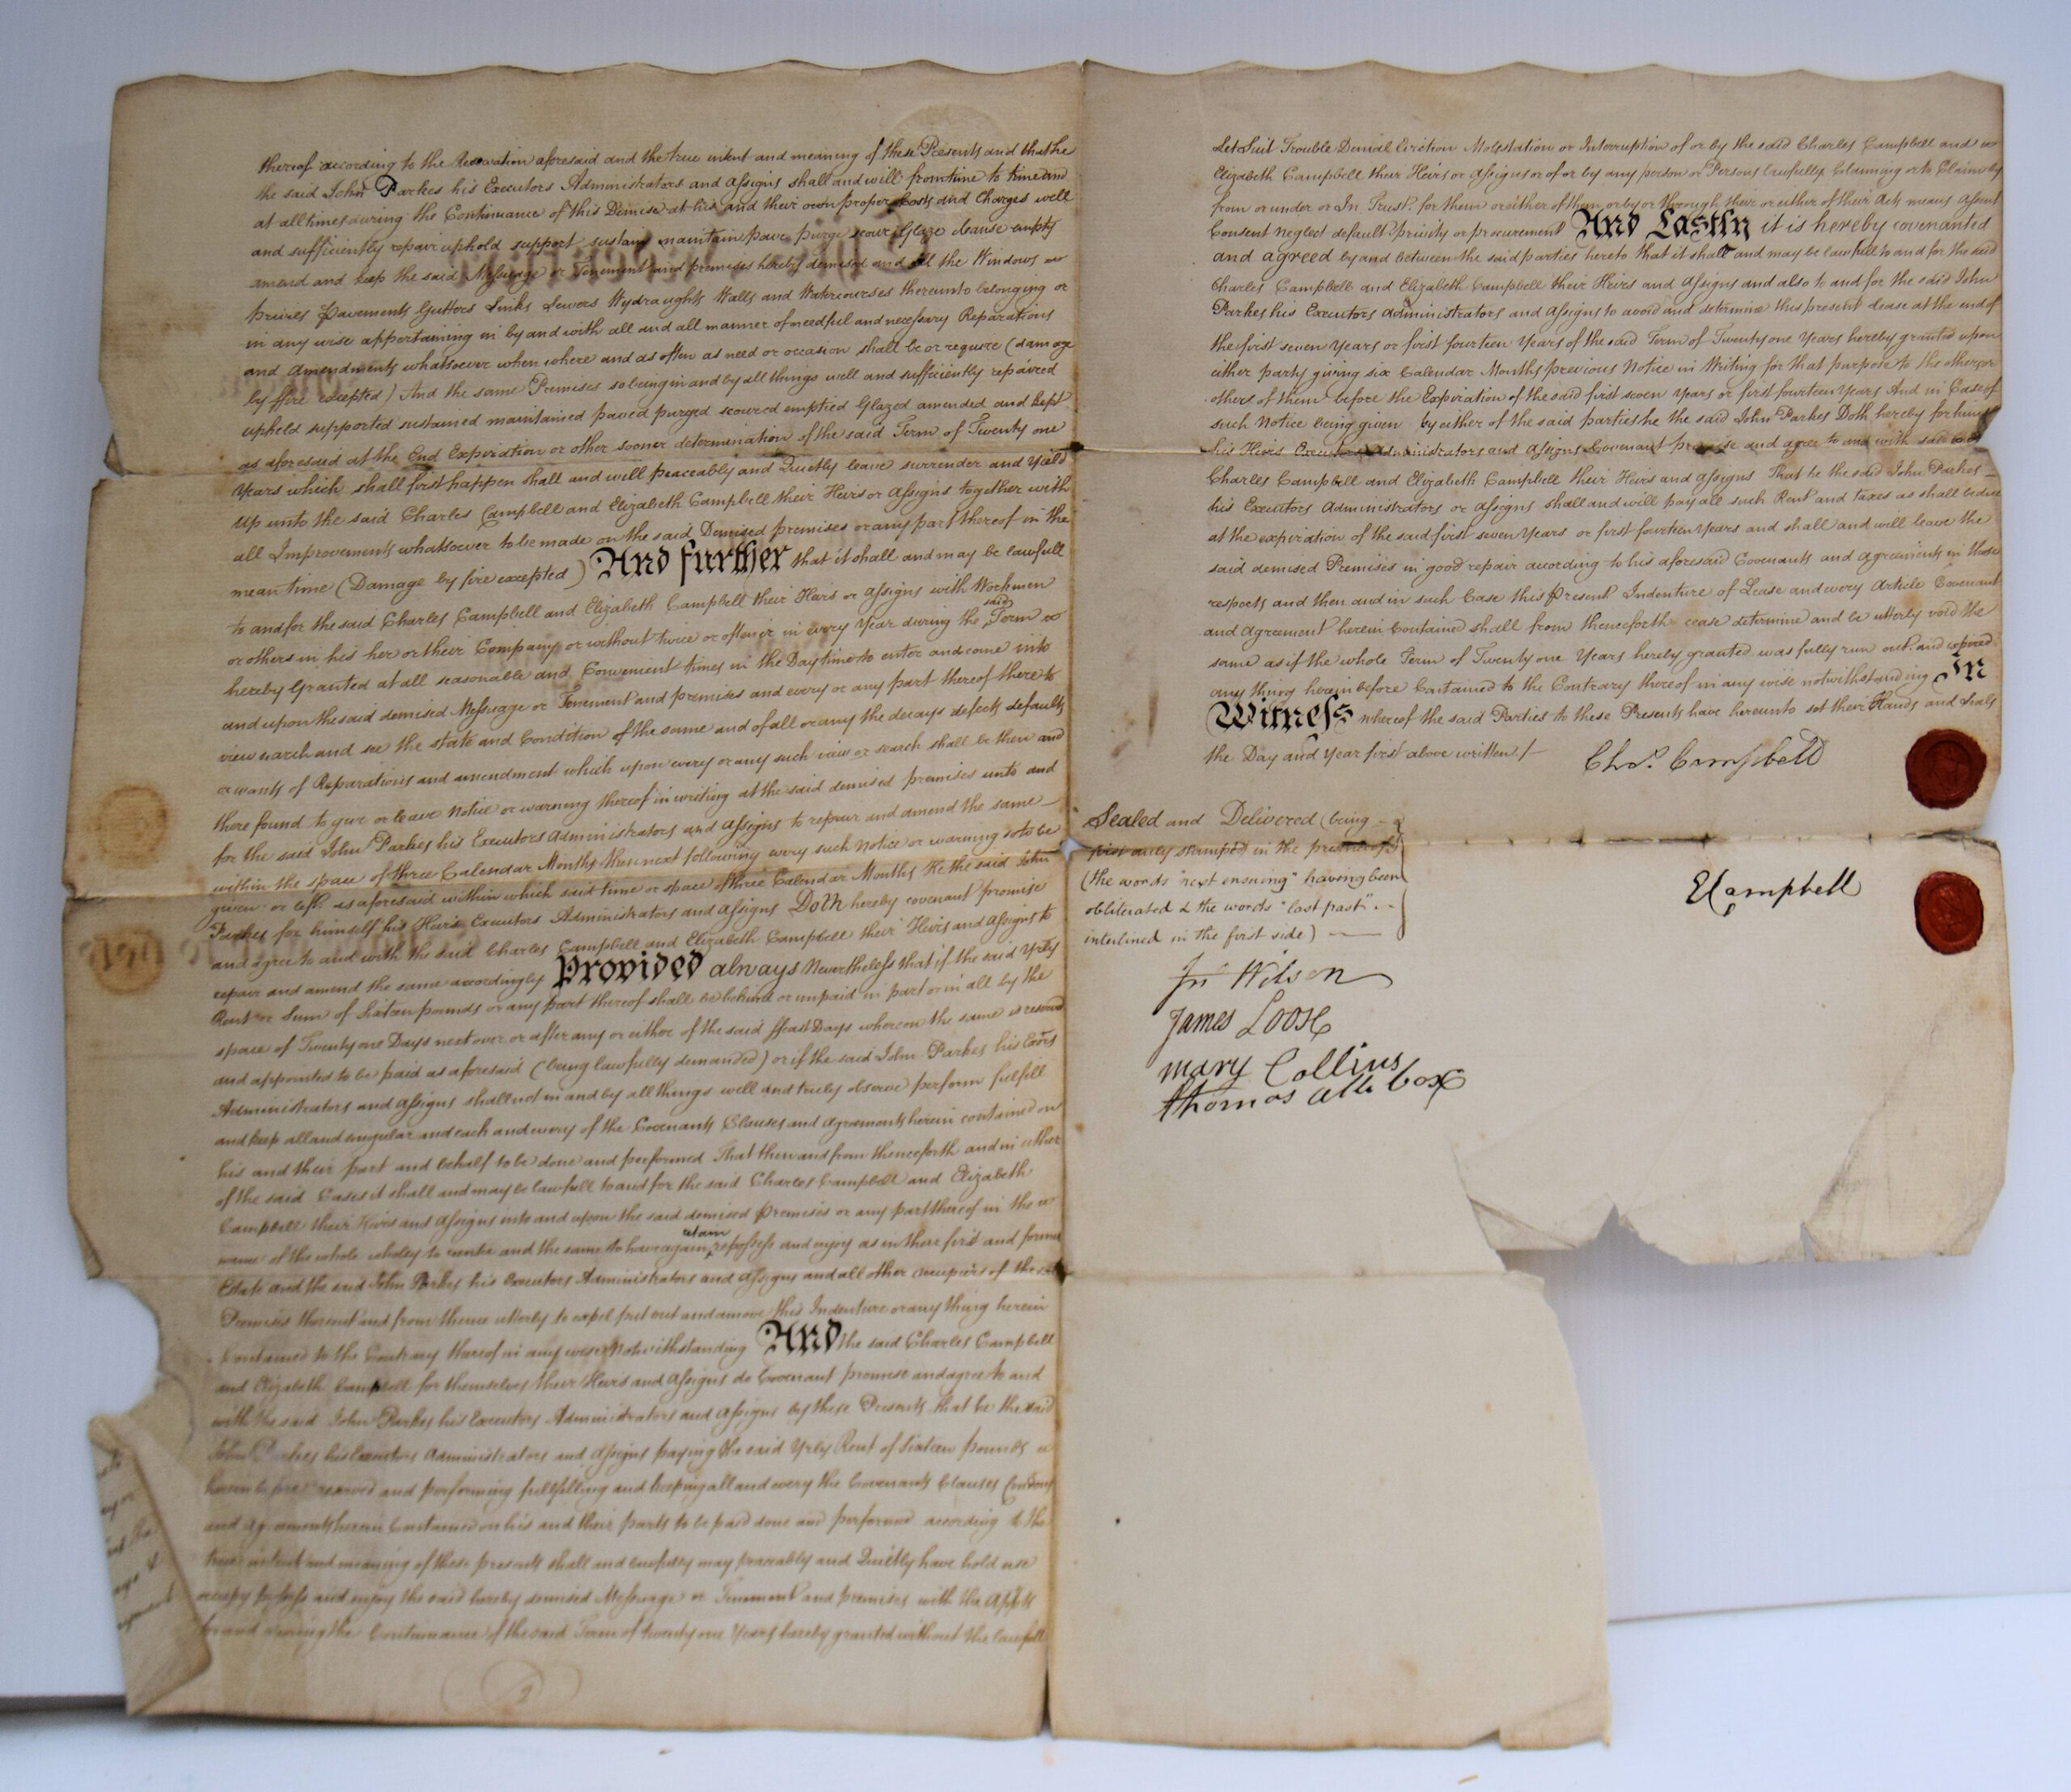 thereof according to the Reservation aforesaid and the true intent and meaning of these Presents and that he
the said John Parkes his Executors Administrators and Assigns shall and will from time to time and
at all times during the Continuance of this Demise at his and their own proper Costs and Charges well
and sufficiently repair uphold support sustain maintain pave purge scour Glaze cleanse empty
amend and keep the said Messuage or Tenement and premises hereby demised and all the Windows
privies Pavements Gutters Sinks Sewers Wydraughts Walls and Watercourses thereunto belonging or
in any wise appertaining in by and with all and all manner of needful and necessary Reparations
and Amendments whatsoever when where and as often as need or occasion shall be or require (damage
by ffire excepted) And the same Premises so being in and by all things well and sufficiently repaired
upheld supported sustained maintained paved purged scoured emptied Glazed amended and kept
as aforesaid at the End Expiration or other sooner determination of the said Term of Twenty one
Years which shall first happen shall and will peaceably and Quietly leave surrender and Yield
up unto the said Charles Campbell and Elizabeth Campbell their Heirs or Assigns together with
all Improvements whatsoever to be made on the said Demised premises or any part thereof in the
mean time (Damage by fire excepted) And further that it shall and may be lawfull
to and for the said Charles Campbell and Elizabeth Campbell their Heirs or Assigns with Workmen
or others in his her or their Company or without twice or oftener in every Year during the said Term
hereby Granted at all seasonable and Convenient times in the Daytime to enter and come into
and upon the said demised Messuage or Tenement and premises and every or any part thereof there to
view search and see the state and Condition of the same and of all or any the decays defects defaults
or wants of Reparations and amendment which upon every or any such view or search shall be then and
there found to give or leave Notice or warning thereof in writing at the said demised premises unto and
for the said John Parkes his Executors Administrators and Assigns to repair and amend the same
within the space of three Calendar Months then next following every such Notice or warning so to be
given or left as aforesaid within which said time or space of three Calendar Months He the said John
Parkes for himself his Heirs Executors Administrators and Assigns Doth hereby covenant promise
and agree to and with the said Charles Campbell and Elizabeth Campbell their Heirs and Assigns to
repair and amend the same accordingly Provided always Nevertheless that if the said Yrly
Rent or Sum of Sixteen pounds or any part thereof shall be behind or unpaid in part or in all by the
space of Twenty one Days next over or after any or either of the said ffeast Days whereon the same is reserved
and appointed to be paid as aforesaid (being lawfully demanded) or if the said John Parkes his Exors
Administrators and Assigns shall not in and by all things well and truly observe perform fulfill
and keep all and singular and each and every of the Covenants Clauses and Agreements herein contained on
his and their part and behalf to be done and performed That then and from thenceforth and in either
of the said Cases it shall and may be lawfull to and for the said Charles Campbell and Elizabeth
Campbell their Heirs and Assigns into and upon the said demised Premises or any part thereof in the
name of the whole wholey to reenter and the same to have again retain repossess and enjoy as in there first and former
Estate and the said John Parkes his Executors Administrators and Assigns and all other occupiers of the said
Premises thereout and from thence utterly to expel put out and amove this Indenture or any thing herein
Contained to the Contrary thereof in any wise Notwithstanding And the said Charles Campbell
and Elizabeth Campbell for themselves their Heirs and Assigns do Covenant promise and agree to and
with the said John Parkes his Executors Administrators and Assigns by these Presents that he the said
John Parkes his Executors Administrators and Assigns paying the said Yrly Rent of Sixteen pounds
herein before reserved and performing fullfilling and keeping all and every the Covenants Clauses
and Agreements herein Contained on his and their parts to be paid done and performed according to the
true intent and meaning of these presents shall and lawfully may peaceably and Quietly have hold use
occupy possess and enjoy the said hereby demised Messuage or Tenement and premises with the
for and during the Continuance of the said Term of twenty one Years hereby granted without the lawfull
2
Let Suit Trouble Denial Eviction Molestation or Interruption of or by the said Charles Campbell and
Elizabeth Campbell their Heirs or Assigns or of or by any person or Persons lawfully Claiming or to Claim by
from or under or In Trust for them or either of them or by or through their or either of their Acts means Assent
Consent neglect default privity or procurement And Lastly it is hereby covenanted
and agreed by and between the said parties hereto that it shall and may be lawfull to and for the said
Charles Campbell and Elizabeth Campbell their Heirs and Assigns and also to and for the said John
Parkes his Executors Administrators and Assigns to avoid and determine this present Lease at the end of
the first seven Years or first fourteen Years of the said Term of Twenty one Years hereby granted upon
either party giving six Calendar Months previous Notice in Writing for that purpose to the other or
others of them before the Expiration of the said first seven Years or first fourteen Years And in Case of
such Notice being given by either of the said parties he the said John Parkes Doth hereby for himself
his Heirs Executors Administrators and Assigns Covenant promise and agree to and with said
Charles Campbell and Elizabeth Campbell their Heirs and Assigns That he the said John Parkes
his Executors Administrators or Assigns shall and will pay all such Rent and taxes as shall be due
at the expiration of the said first seven Years or first fourteen Years and shall and will leave the
said demised Premises in good repair according to his aforesaid Covenants and Agreements in those
respects and then and in such Case this Present Indenture of Lease and every Article Covenant
and Agreement herein Contained shall from thenceforth cease determine and be utterly void the
same as if the whole Term of Twenty one Years hereby granted was fully run out and expired
any thing herein before Contained to the Contrary thereof in any wise notwithstanding In
Witness whereof the said Parties to these Presents have hereunto set their Hands and Seals
the Day and Year first above written
Chs. Campbell
Sealed and Delivered (being
first duly stamped) in the presence of
(the words "next ensuing" having been
obliterated & the words "last past"
interlined in the first side)
E Campbell
Jn Wilson
James Loose
Mary Collins
Thomas Allibox